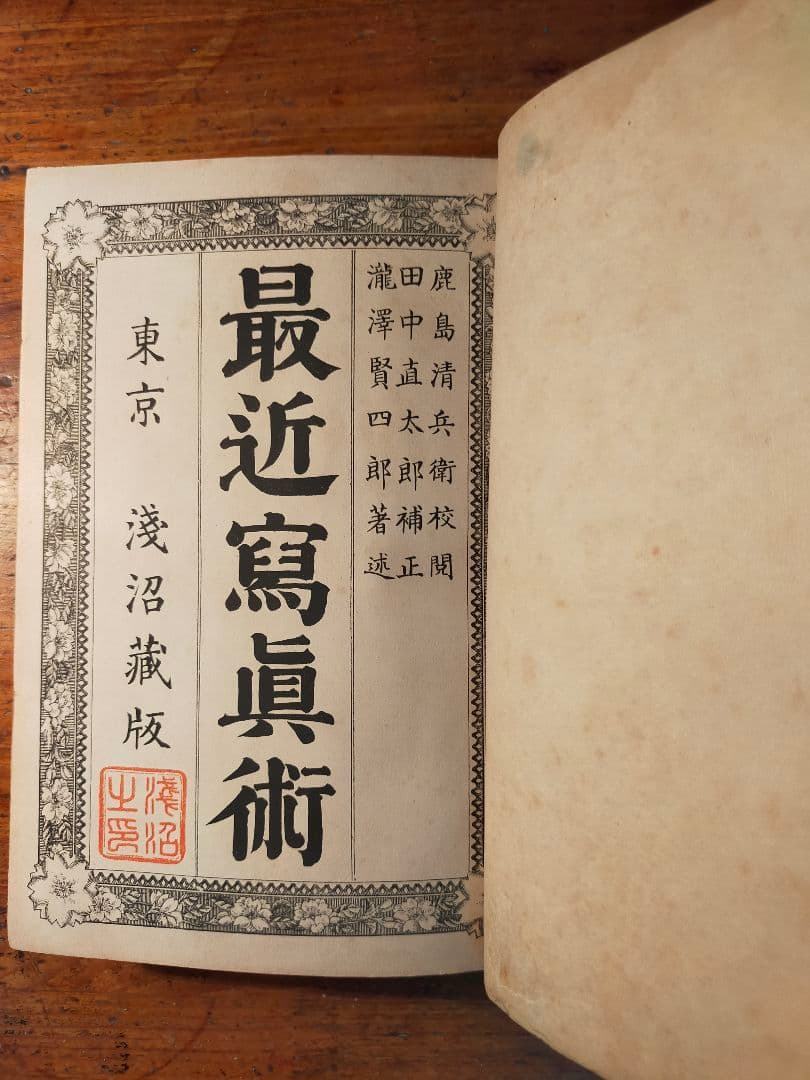 鹿島清兵衛校閲
田中直太郎補正
瀧澤賢四郎著述
最近寫眞術
東京 淺沼藏版
淺沼之印